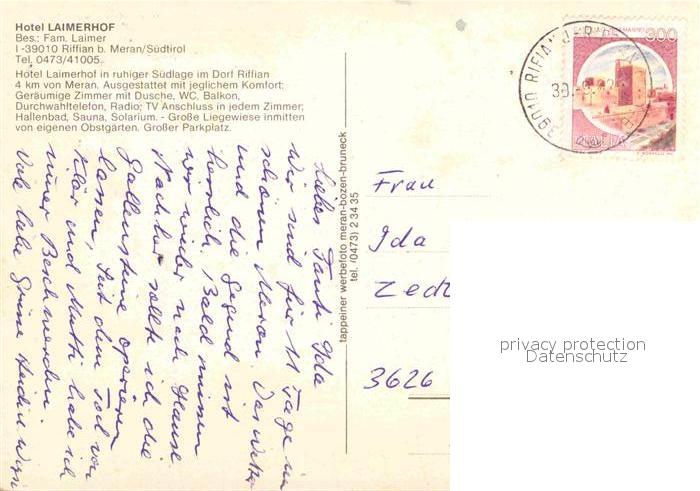 Hotel LAIMERHOF
Bes.: Fam. Laimer
I -39010 Riffian b. Meran/Südtirol
Tel. 0473/41005
Hotel Laimerhof in ruhiger Südlage im Dorf Riffian
4 km von Meran. Ausgestattet mit jeglichem Komfort:
Geräumige Zimmer mit Dusche, WC, Balkon,
Durchwahltelefon, Radio; TV Anschluss in jedem Zimmer,
Hallenbad, Sauna, Solarium. - Große Liegewiese inmitten
von eigenen Obstgärten. Großer Parkplatz.
Liebes Tanti Ida
Wir sind für 11 Tage im
schönen Meran. Das Wetter
und die Gegend ist
herrlich. Bald müssen
wir wieder nach Hause.
Nachher sollte ich die
Gallensteine operieren
lassen, Seit dem Tod von
und Mutti habe ich
immer Beschwerden.
Viele liebe Grüsse Heidi u
tappeiner werbefoto meran-bozen-bruneck
tel. (0473) 2 34 35
Frau
Ida
Zed
3626
300
ITALIA
39010 RIFIAN
30
privacy protection
Datenschutz